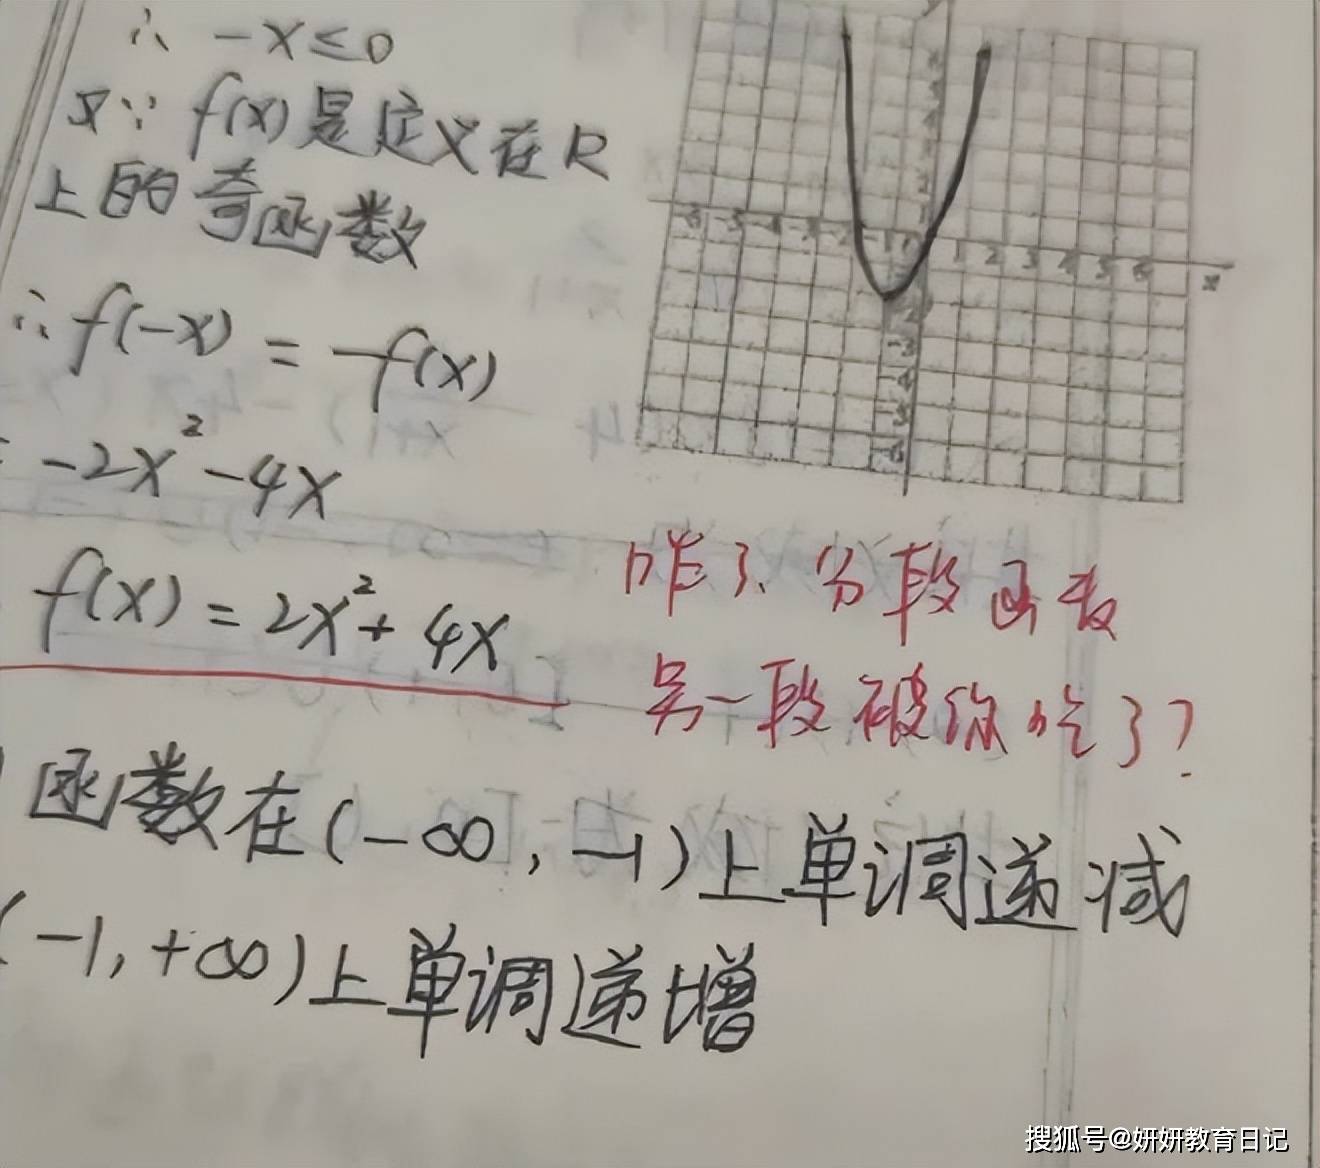 ∴ -x≤0
又∵ f(x)是定义在R
上的奇函数
∴f(-x) = -f(x)
-2x²-4x
f(x) = 2x²+4x
咋了、分段函数
另一段被你吃了?
函数在(-∞, -1)上单调递减
(-1, +∞)上单调递增
-6 -5 -4 -3 -2 -1 0 1 2 3 4 5 6 x
搜狐号@妍妍教育日记